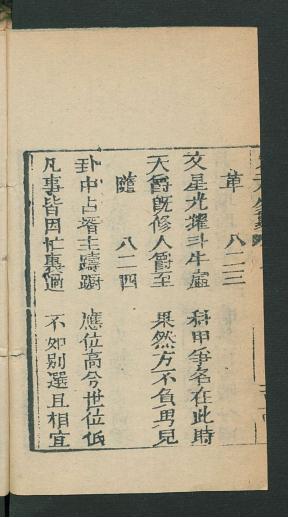 革　八二三
文星光耀斗牛虛　科甲爭名在此時
天爵既修人爵至　果然方不負男兒
隨　八二四
卦中占壻主躊躕　應位高兮世位低
凡事皆因忙裏過　不如別選且相宜